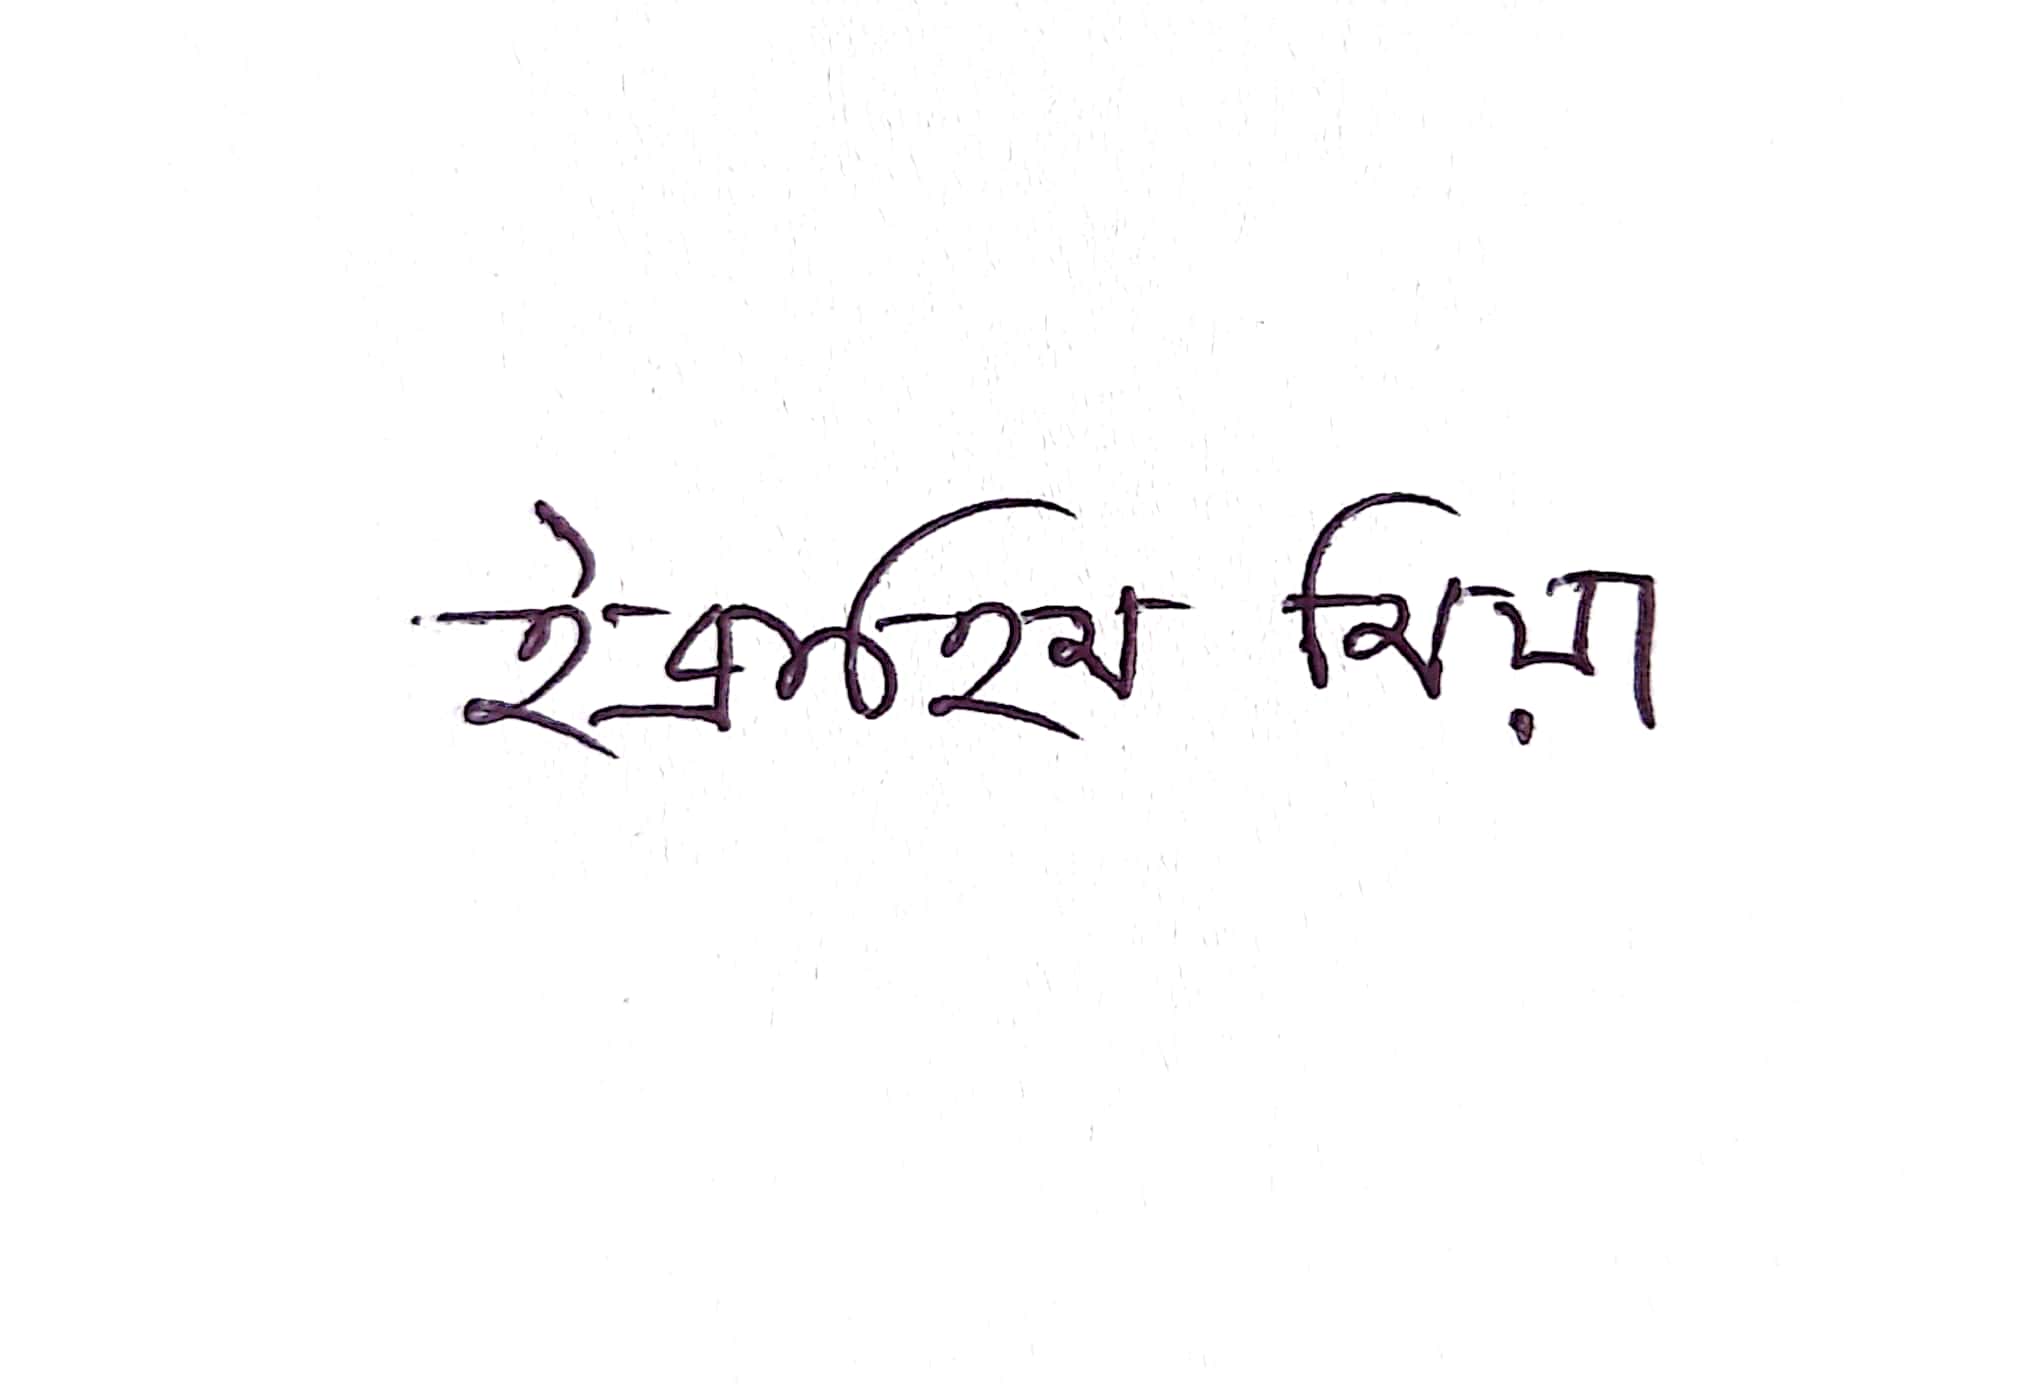 ইব্রাহিম মিয়া